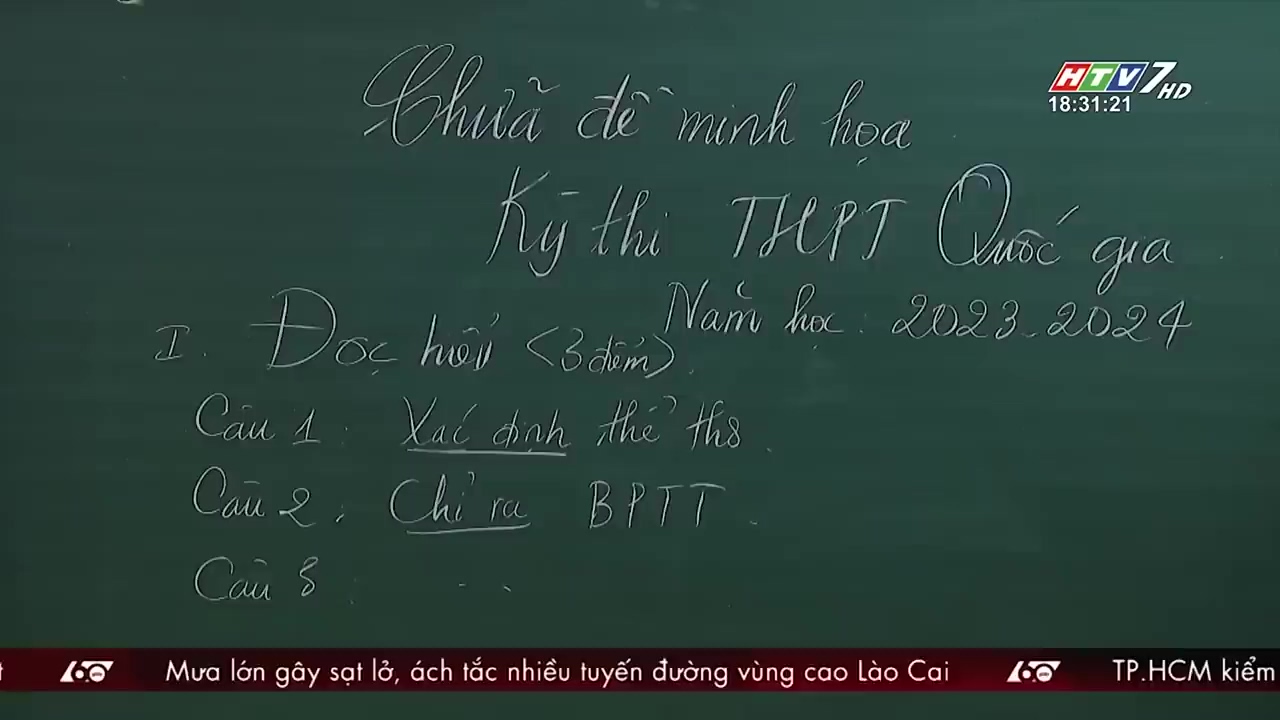 HTV7 HD
18:31:21
Chữa đề minh họa
Kỳ thi THPT Quốc gia
Năm học: 2023-2024
I. Đọc hiểu <3 điểm>.
Câu 1: Xác định thể thơ.
Câu 2: Chỉ ra BPTT.
Câu 3: ...
t 60 Mưa lớn gây sạt lở, ách tắc nhiều tuyến đường vùng cao Lào Cai 60 TP.HCM kiểm